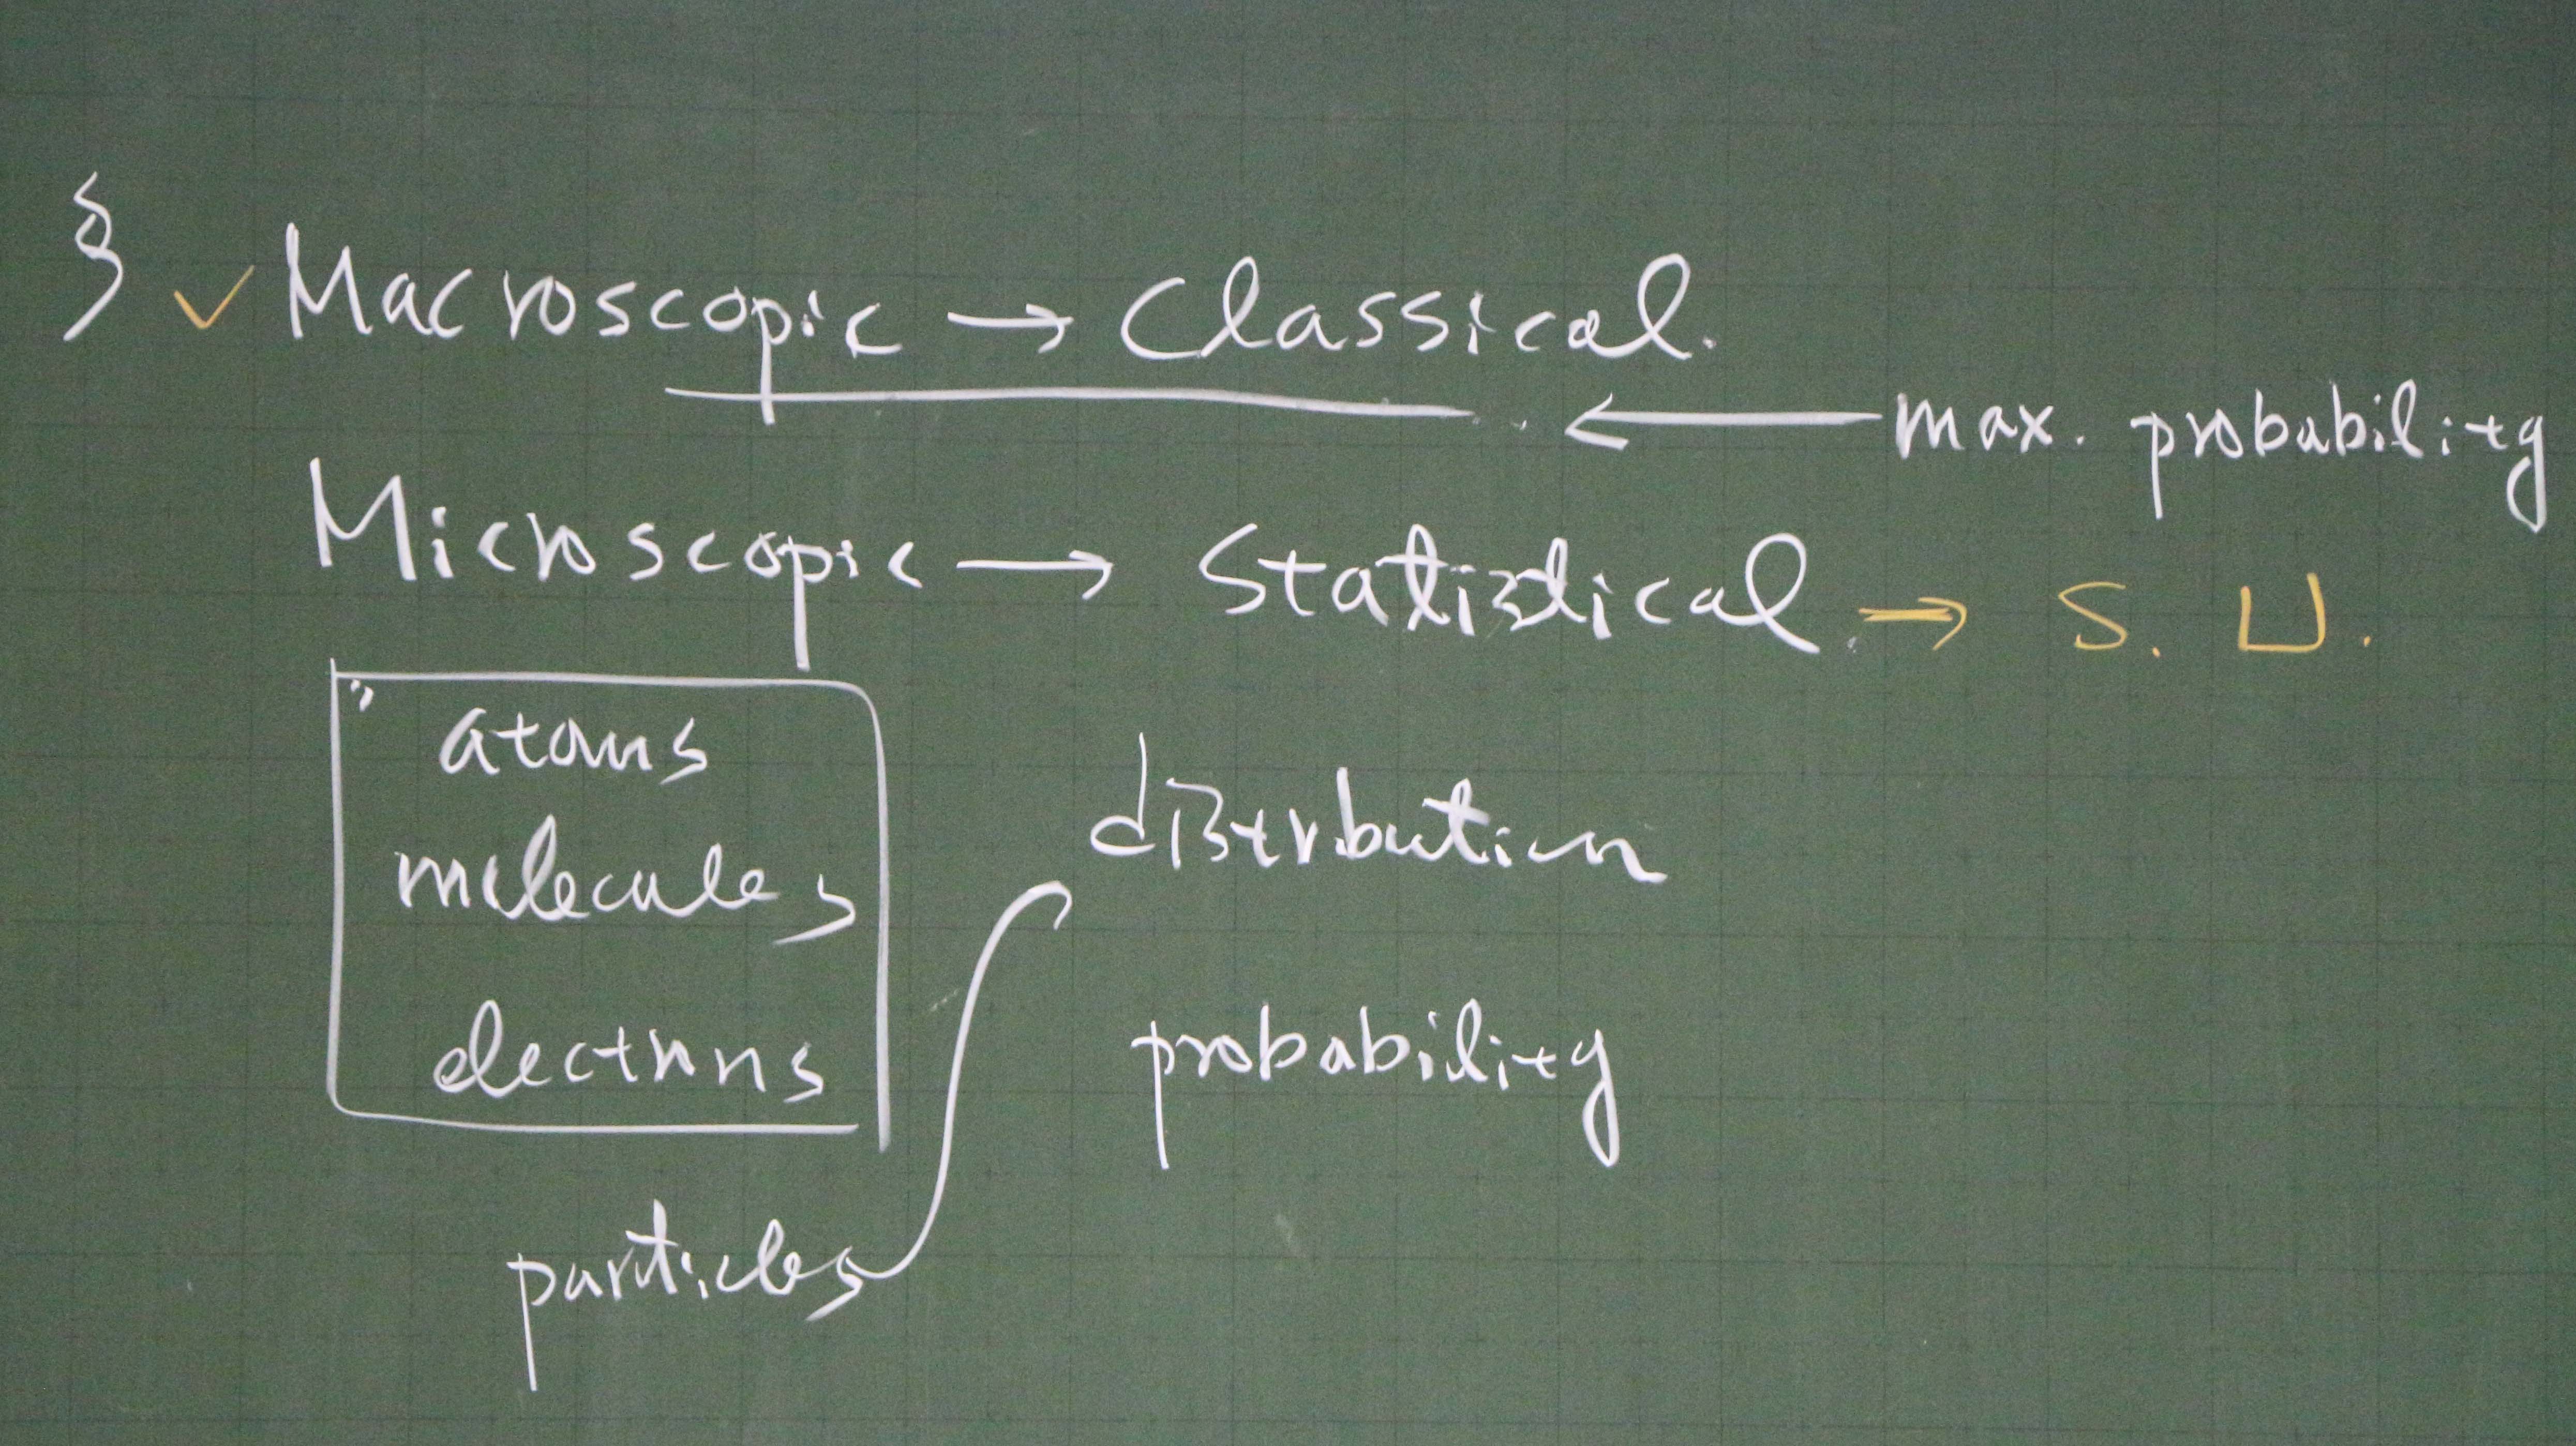 § ✓ Macroscopic → Classical.
← max. probability
Microscopic → Statistical → S. U.
atoms
molecules
electrons
distribution
probability
particles